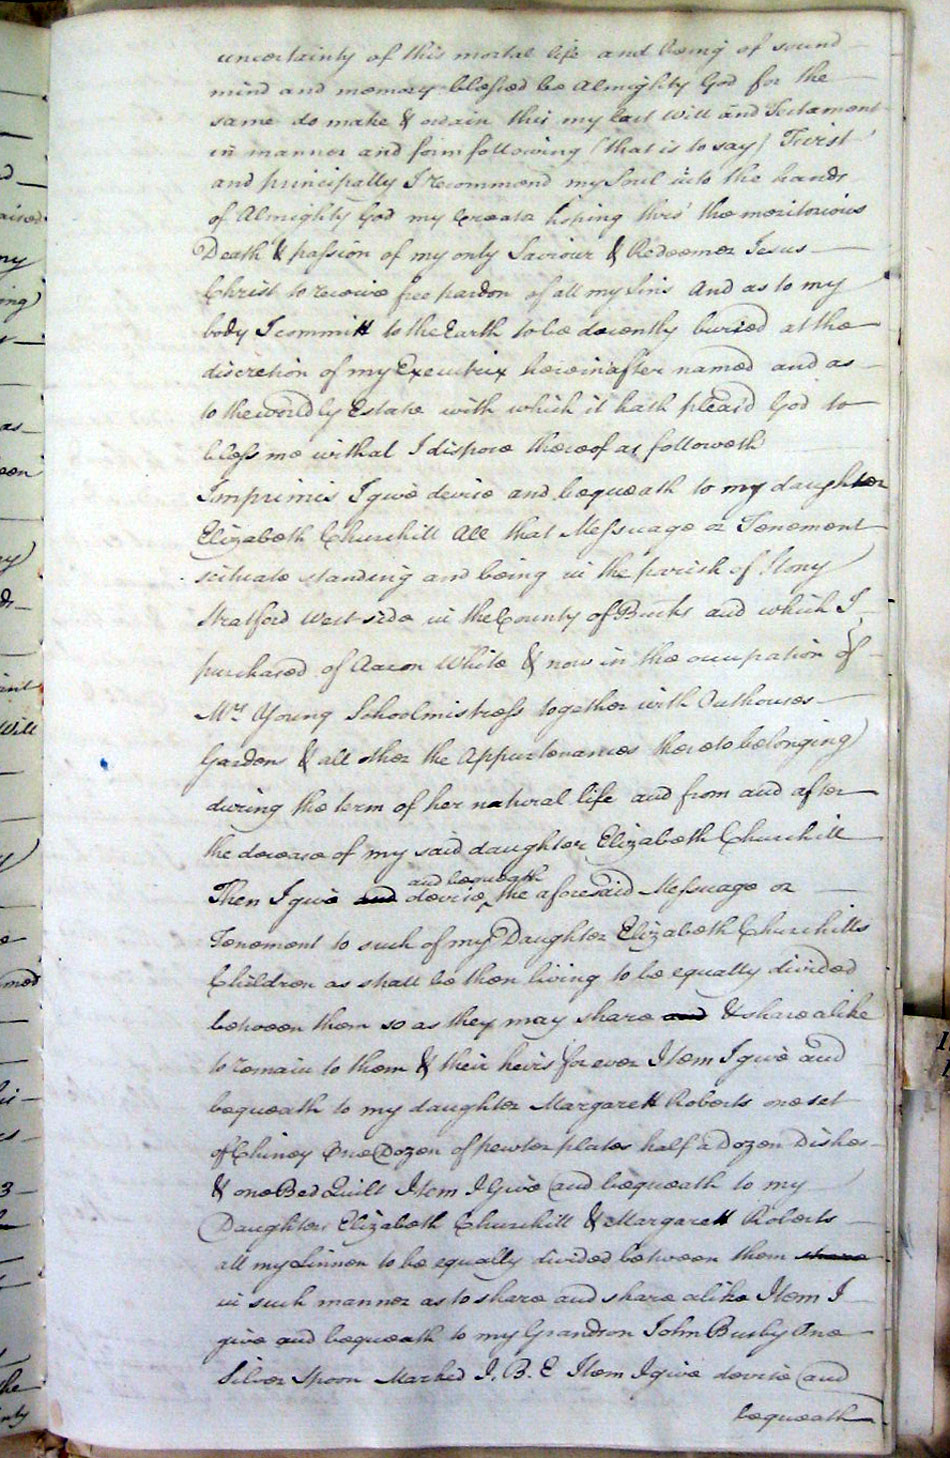 uncertainty of this mortal life and being of sound
mind and memory blessed be Almighty God for the
same do make & ordain this my last Will and Testament
in manner and form following (that is to say) First
and principally I recommend my Soul into the hands
of Almighty God my Creator hoping thro' the meritorious
Death & passion of my only Saviour & Redeemer Jesus
Christ to receive free pardon of all my Sins And as to my
body I committ to the Earth to be decently buried at the
discretion of my Executrix hereinafter named and as
to the worldly Estate with which it hath pleas'd God to
bless me withal I dispose thereof as followeth
Imprimis I give devise and bequeath to my daughter
Elizabeth Churchill All that Messuage or Tenement
scituate standing and being in the parish of Stony
Stratford West side in the County of Bucks and which I
purchased of Aaron White & now in the occupation of
Mrs Young Schoolmistress together with Outhouses
Gardens & all other the Appurtenances thereto belonging
during the term of her natural life and from and after
the decease of my said daughter Elizabeth Churchill
Then I give and devise and bequeath the aforesaid Messuage or
Tenement to such of my Daughter Elizabeth Churchills
Children as shall be then living to be equally divided
between them so as they may share and & share alike
to remain to them & their heirs for ever Item I give and
bequeath to my daughter Margarett Roberts one set
of Chiney One Dozen of pewter plates half a Dozen Dishes
& one Bed Quilt Item I Give and bequeath to my
Daughters Elizabeth Churchill & Margarett Roberts
all my Linnen to be equally divided between them share
in such manner as to share and share alike Item I
give and bequeath to my Grandson John Busby One
Silver Spoon Marked I. B. E Item I give devise and
bequeath